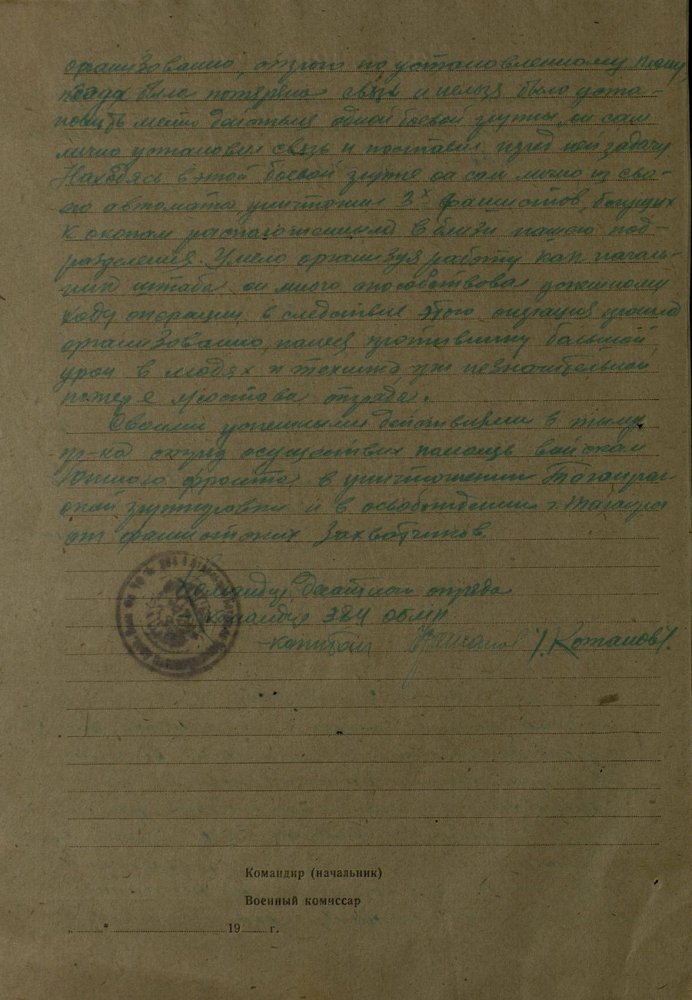 организованно, строго по установленному плану
когда была потеряна связь и нельзя было уста-
новить место действия одной боевой группы, он сам
лично установил связь и поставил перед ней задачу
Находясь в этой боевой группе он сам лично из сво-
его автомата уничтожил 3х фашистов, бегущих
к окопам расположенным в близи нашего под-
разделения. Умело организуя работу как началь-
ник штаба он много способствовал успешному
ходу операции, в следствие этого операция прошла
организованно, нанеся противнику большой
урон в людях и технике при незначительной
потере л/состава отряда.
Своими успешными действиями в тылу
пр-ка отряд осуществил помощь войскам
Южного фронта в уничтожении Таганрог-
ской группировки и в освобождении г. Таганрог
от фашистских захватчиков.
Командир Десантного отряда
Командир 384 ОБМП
капитан /. Котанов /.
Командир (начальник)
Военный комиссар
„ " 19 г.